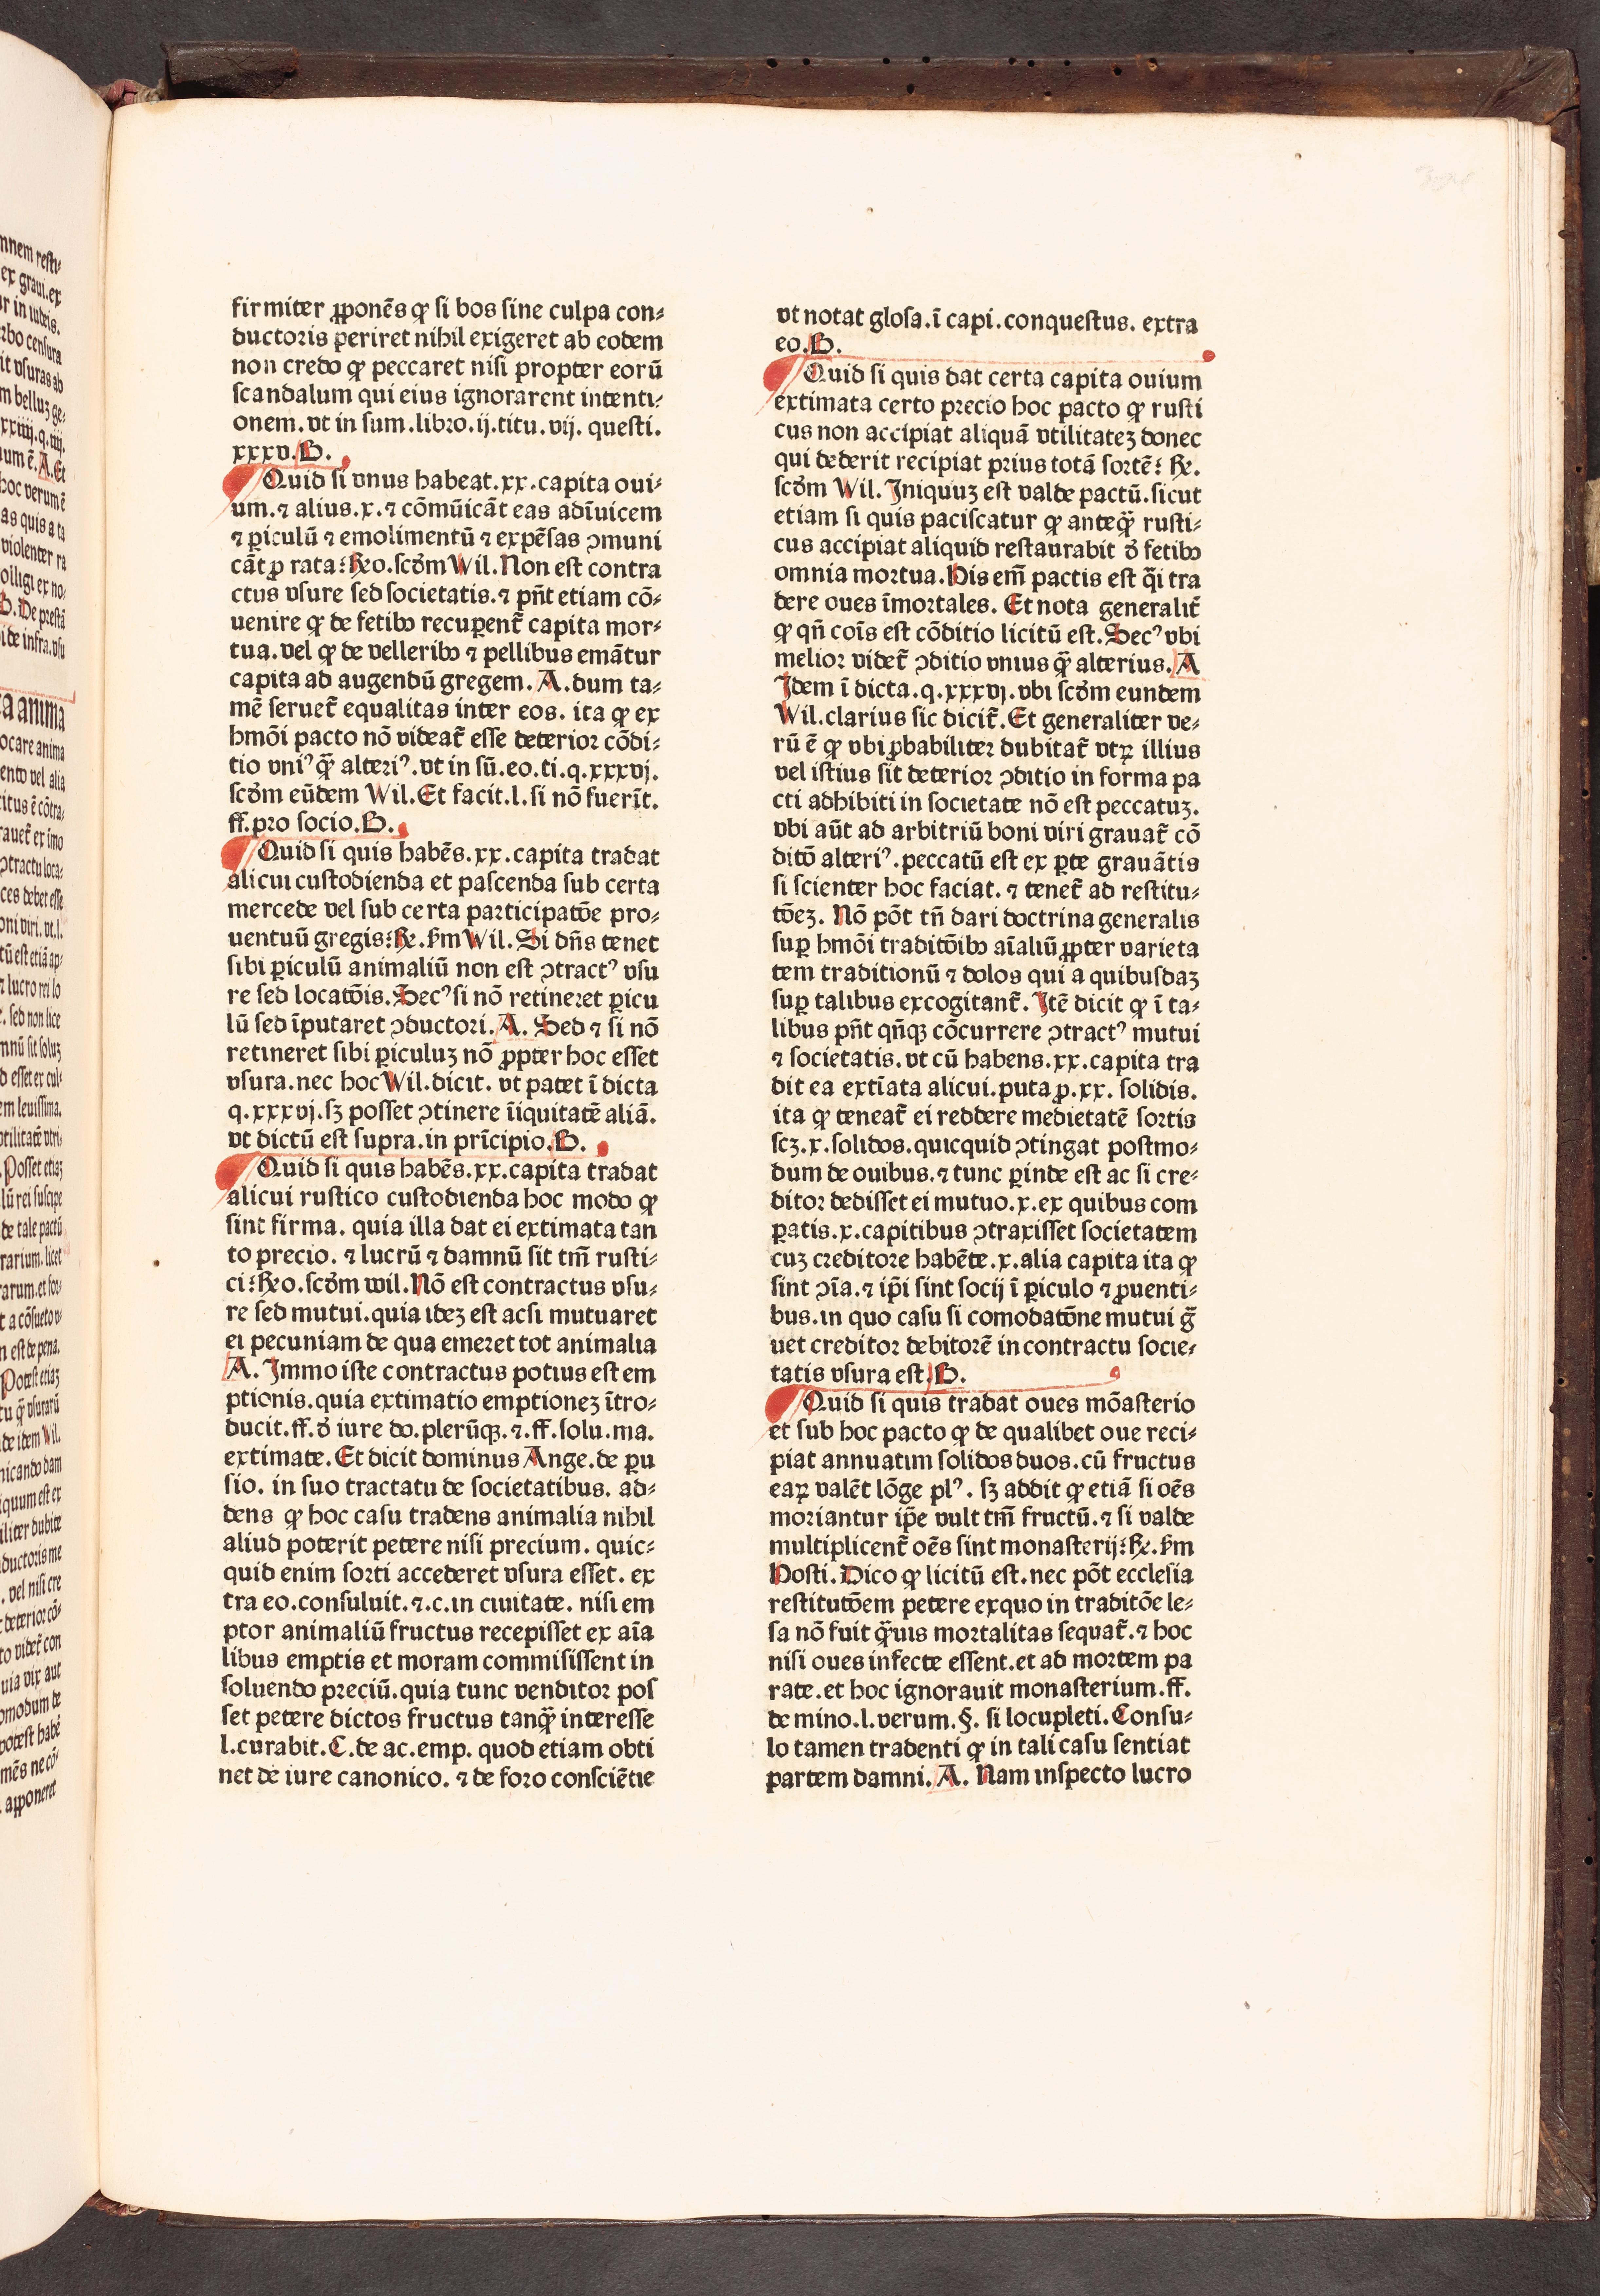 firmiter ꝓponẽs ꝙ si bos sine culpa con-
ductoris periret nihil exigeret ab eodem
non credo ꝙ peccaret nisi propter eorũ
scandalum qui eius ignorarent intenti-
onem. vt in sum. libro. ij. titu. vij. questi.
xxxv. B.
Quid si vnus habeat. xx. capita oui-
um. ⁊ alius. x. ⁊ cõmũicãt eas adĩuicem
⁊ ꝑiculũ ⁊ emolimentũ ⁊ expẽsas ꝯmuni
cãt ꝓ rata: Rͦ. scd̃m Wil. Non est contra
ctus vsure sed societatis. ⁊ pñt etiam cõ-
uenire ꝙ de fetibꝰ recuꝑent̃ capita mor-
tua. vel ꝙ de velleribꝰ ⁊ pellibus emãtur
capita ad augendũ gregem. A. dum ta-
mẽ seruet̃ equalitas inter eos. ita ꝙ ex
hmõi pacto nõ videat̃ esse deterior cõdi-
tio vniꝰ ꝙ̃ alteriꝰ. vt in sũ. eo. ti. q. xxxvj.
scd̃m eũdem Wil. Et facit. l. si nõ fuerĩt.
ff. pro socio. B.
Quid si quis habẽs. xx. capita tradat
alicui custodienda et pascenda sub certa
mercede vel sub certa participatõe pro-
uentuũ gregis: Rͤ. ẜm Wil. Si dñs tenet
sibi ꝑiculũ animaliũ non est ꝯtractꝰ vsu
re sed locatõis. Secꝰ si nõ retineret ꝑicu
lũ sed ĩputaret ꝯductori. A. Sed ⁊ si nõ
retineret sibi ꝑiculuꝫ nõ ꝓpter hoc esset
vsura. nec hoc Wil. dicit. vt patet ĩ dicta
q. xxxvj. sꝫ posset ꝯtinere ĩiquitatẽ aliã.
vt dictũ est supra. in prĩcipio. B.
Quid si quis habẽs. xx. capita tradat
alicui rustico custodienda hoc modo ꝙ
sint firma. quia illa dat ei extimata tan
to precio. ⁊ lucrũ ⁊ damnũ sit tm̃ rusti-
ci: Rͦ. scd̃m wil. Nõ est contractus vsu-
re sed mutui. quia ideꝫ est acsi mutuaret
ei pecuniam de qua emeret tot animalia
A. Immo iste contractus potius est em
ptionis. quia extimatio emptioneꝫ ĩtro-
ducit. ff. d̃ iure do. plerũqꝫ. ⁊. ff. solu. ma.
extimate. Et dicit dominus Ange. de ꝑu
sio. in suo tractatu de societatibus. ad-
dens ꝙ hoc casu tradens animalia nihil
aliud poterit petere nisi precium. quic-
quid enim sorti accederet vsura esset. ex
tra eo. consuluit. ⁊. c. in ciuitate. nisi em
ptor animaliũ fructus recepisset ex aĩa
libus emptis et moram commisissent in
soluendo preciũ. quia tunc venditor pos
set petere dictos fructus tanꝙ̃ interesse
l. curabit. C. de ac. emp. quod etiam obti
net de iure canonico. ⁊ de foro consciẽtie
vt notat glosa. ĩ capi. conquestus. extra
eo. B.
Quid si quis dat certa capita ouium
extimata certo precio hoc pacto ꝙ rusti
cus non accipiat aliquã vtilitateꝫ donec
qui dederit recipiat prius totã sortẽ: Rͤ.
scd̃m Wil. Iniquuꝫ est valde pactũ. sicut
etiam si quis paciscatur ꝙ anteꝙ̃ rusti-
cus accipiat aliquid restaurabit d̃ fetibꝰ
omnia mortua. His em̃ pactis est q̃i tra
dere oues ĩmortales. Et nota generalit̃
ꝙ qñ coĩs est cõditio licitũ est. Secꝰ vbi
melior videt̃ ꝯditio vnius ꝙ̃ alterius. A
Idem ĩ dicta. q. xxxvj. vbi scd̃m eundem
Wil. clarius sic dicit̃. Et generaliter ve-
rũ ẽ ꝙ vbi ꝓbabiliter dubitat̃ vtꝝ illius
vel istius sit deterior ꝯditio in forma pa
cti adhibiti in societate nõ est peccatuꝫ.
vbi aũt ad arbitriũ boni viri grauat̃ cõ
ditõ alteriꝰ. peccatũ est ex ꝑte grauãtis
si scienter hoc faciat. ⁊ tenet̃ ad restitu-
tõeꝫ. Nõ põt tñ dari doctrina generalis
suꝑ hmõi traditõibꝰ aĩaliũ ꝓpter varieta
tem traditionũ ⁊ dolos qui a quibusdaꝫ
suꝑ talibus excogitant̃. Itẽ dicit ꝙ ĩ ta-
libus pñt qñqꝫ cõcurrere ꝯtractꝰ mutui
⁊ societatis. vt cũ habens. xx. capita tra
dit ea extĩata alicui. puta ꝓ. xx. solidis.
ita ꝙ teneat̃ ei reddere medietatẽ sortis
scꝫ. x. solidos. quicquid ꝯtingat postmo-
dum de ouibus. ⁊ tunc ꝑinde est ac si cre-
ditor dedisset ei mutuo. x. ex quibus com
ꝑatis. x. capitibus ꝯtraxisset societatem
cuꝫ creditore habẽte. x. alia capita ita ꝙ
sint ꝯĩa. ⁊ ip̃i sint socij ĩ ꝑiculo ⁊ ꝓuenti-
bus. in quo casu si comodatõne mutui g̃
uet creditor debitorẽ in contractu socie-
tatis vsura est. B.
Quid si quis tradat oues mõasterio
et sub hoc pacto ꝙ de qualibet oue reci-
piat annuatim solidos duos. cũ fructus
eaꝝ valẽt lõge plꝰ. sꝫ addit ꝙ etiã si oẽs
moriantur ip̃e vult tm̃ fructũ. ⁊ si valde
multiplicent̃ oẽs sint monasterij: Rͤ. ẜm
Hosti. Dico ꝙ licitũ est. nec põt ecclesia
restitutõem petere exquo in traditõe le-
sa nõ fuit ꝙ̃uis mortalitas sequat̃. ⁊ hoc
nisi oues infecte essent. et ad mortem pa
rate. et hoc ignorauit monasterium. ff.
de mino. l. verum. §. si locupleti. Consu-
lo tamen tradenti ꝙ in tali casu sentiat
partem damni. A. Nam inspecto lucro